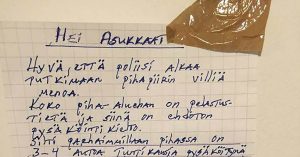 HEI ASUKKAAT
HYVÄ, ETTÄ POLIISI ALKAA
TUTKIMAAN PIHAPIIRIN VILLIÄ
MENOA.
KOKO PIHA-ALUEHAN ON PELASTUS-
TIETÄ JA SIINÄ ON EHDOTON
PYSÄKÖINTIKIELTO.
SILTI PARHAIMMILLAAN PIHASSA ON
3-4 AUTOA TUNTIKAUSIA PYSÄKÖITYNÄ